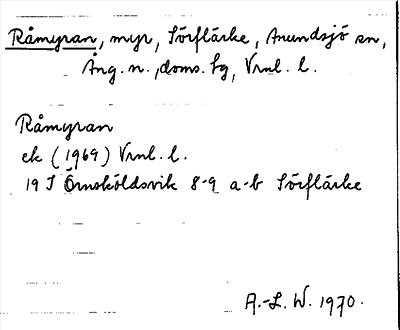 Råmyran, myr, Sörflärke, Anundsjö sn,
Ång. n., doms. lg, Vrnl. l.
Råmyran
ek (1969) Vrnl. l.
19 J Örnsköldsvik 8-9 a-b Sörflärke
A.-L. W. 1970.